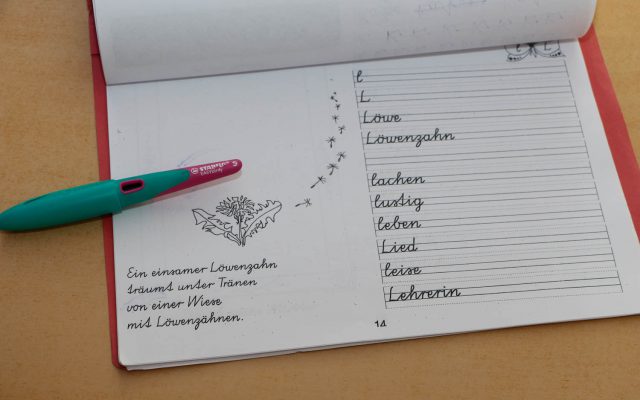 Ein einsamer Löwenzahn
träumt unter Tränen
von einer Wiese
mit Löwenzähnen.
l
L
Löwe
Löwenzahn
lachen
lustig
leben
Lied
leise
Lehrerin
14
STABILO